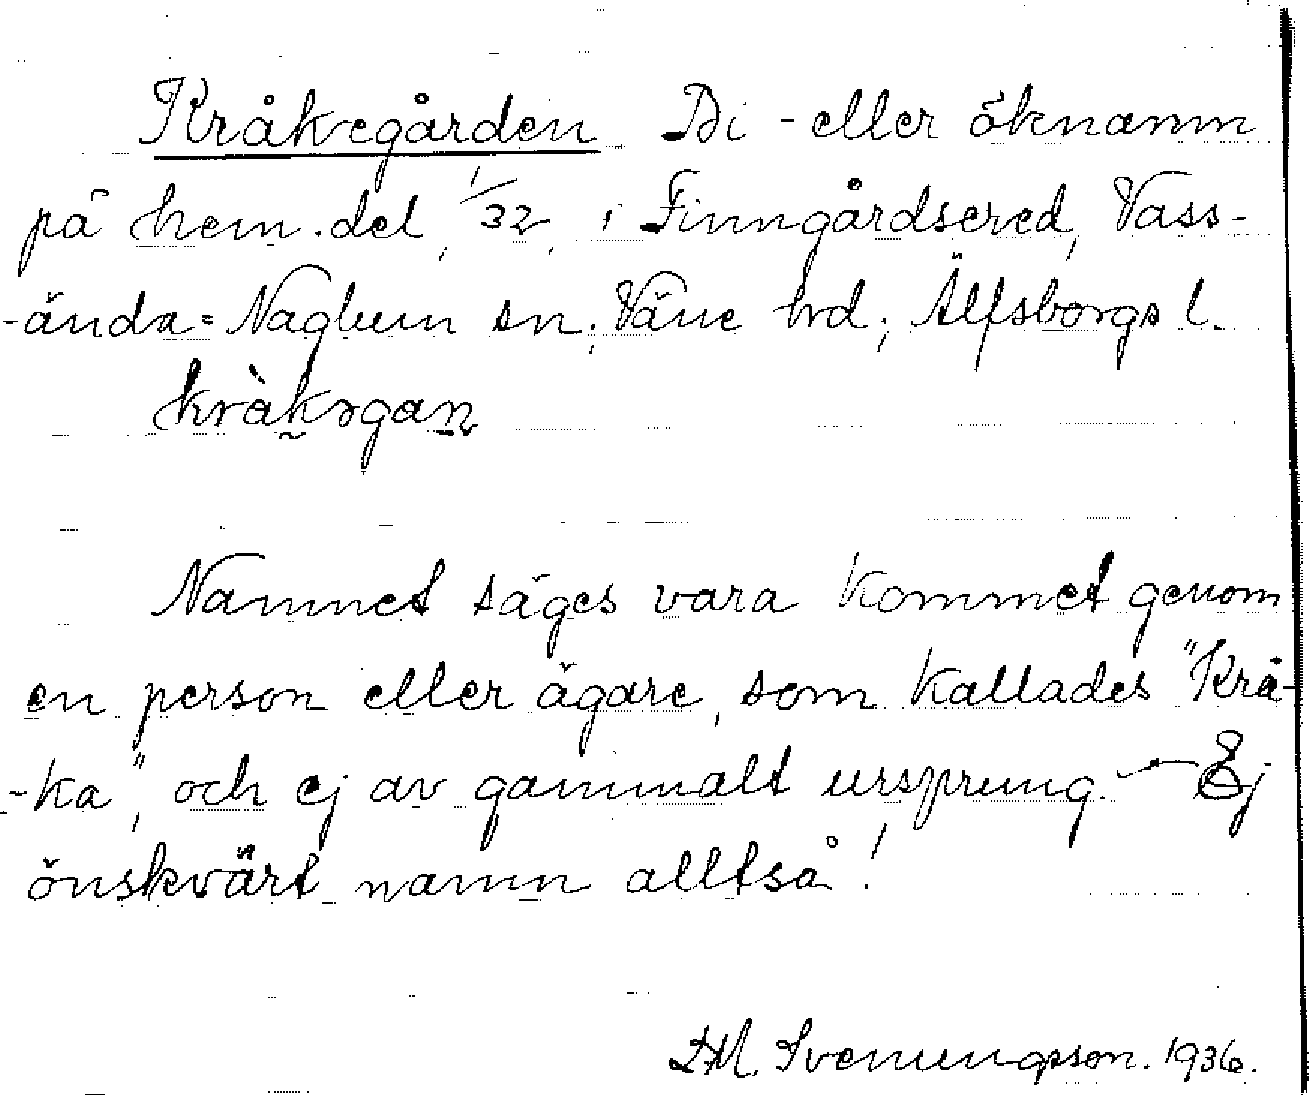 Kråkegården Bi-eller öknamn
på hem.del, 1/32, i Finngårdsered, Vass-
-ända=Naglum sn; Väne hrd; Älfsborgs l.
kràkɘgaṉ
Namnet säges vara kommet genom
en person eller ägare, som kallades "Krå-
-ka", och ej av gammalt ursprung. - Ej
önskvärt namn alltså!
Svenungsson. 1936.